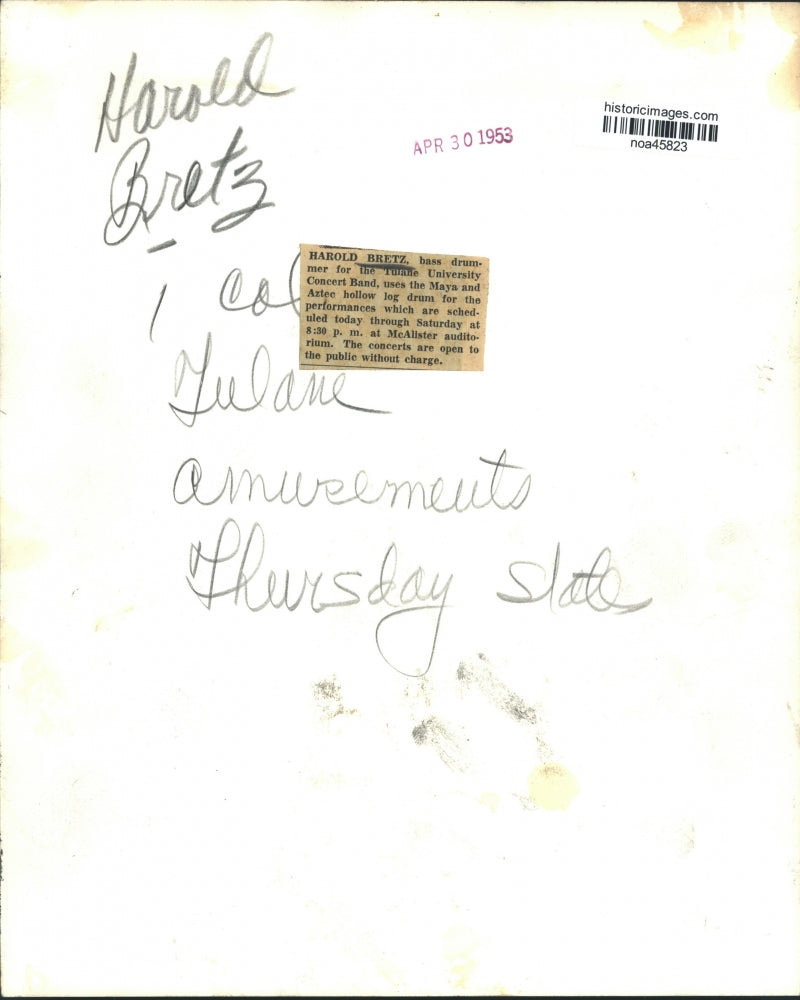 Harold
Bretz
historicimages.com
noa45823
APR 30 1953
HAROLD BRETZ, bass drum-
mer for the Tulane University
Concert Band, uses the Maya and
Aztec hollow log drum for the
performances which are sched-
uled today through Saturday at
8:30 p. m. at McAlister audito-
rium. The concerts are open to
the public without charge.
1 col
Tulane
amusements
Thursday state